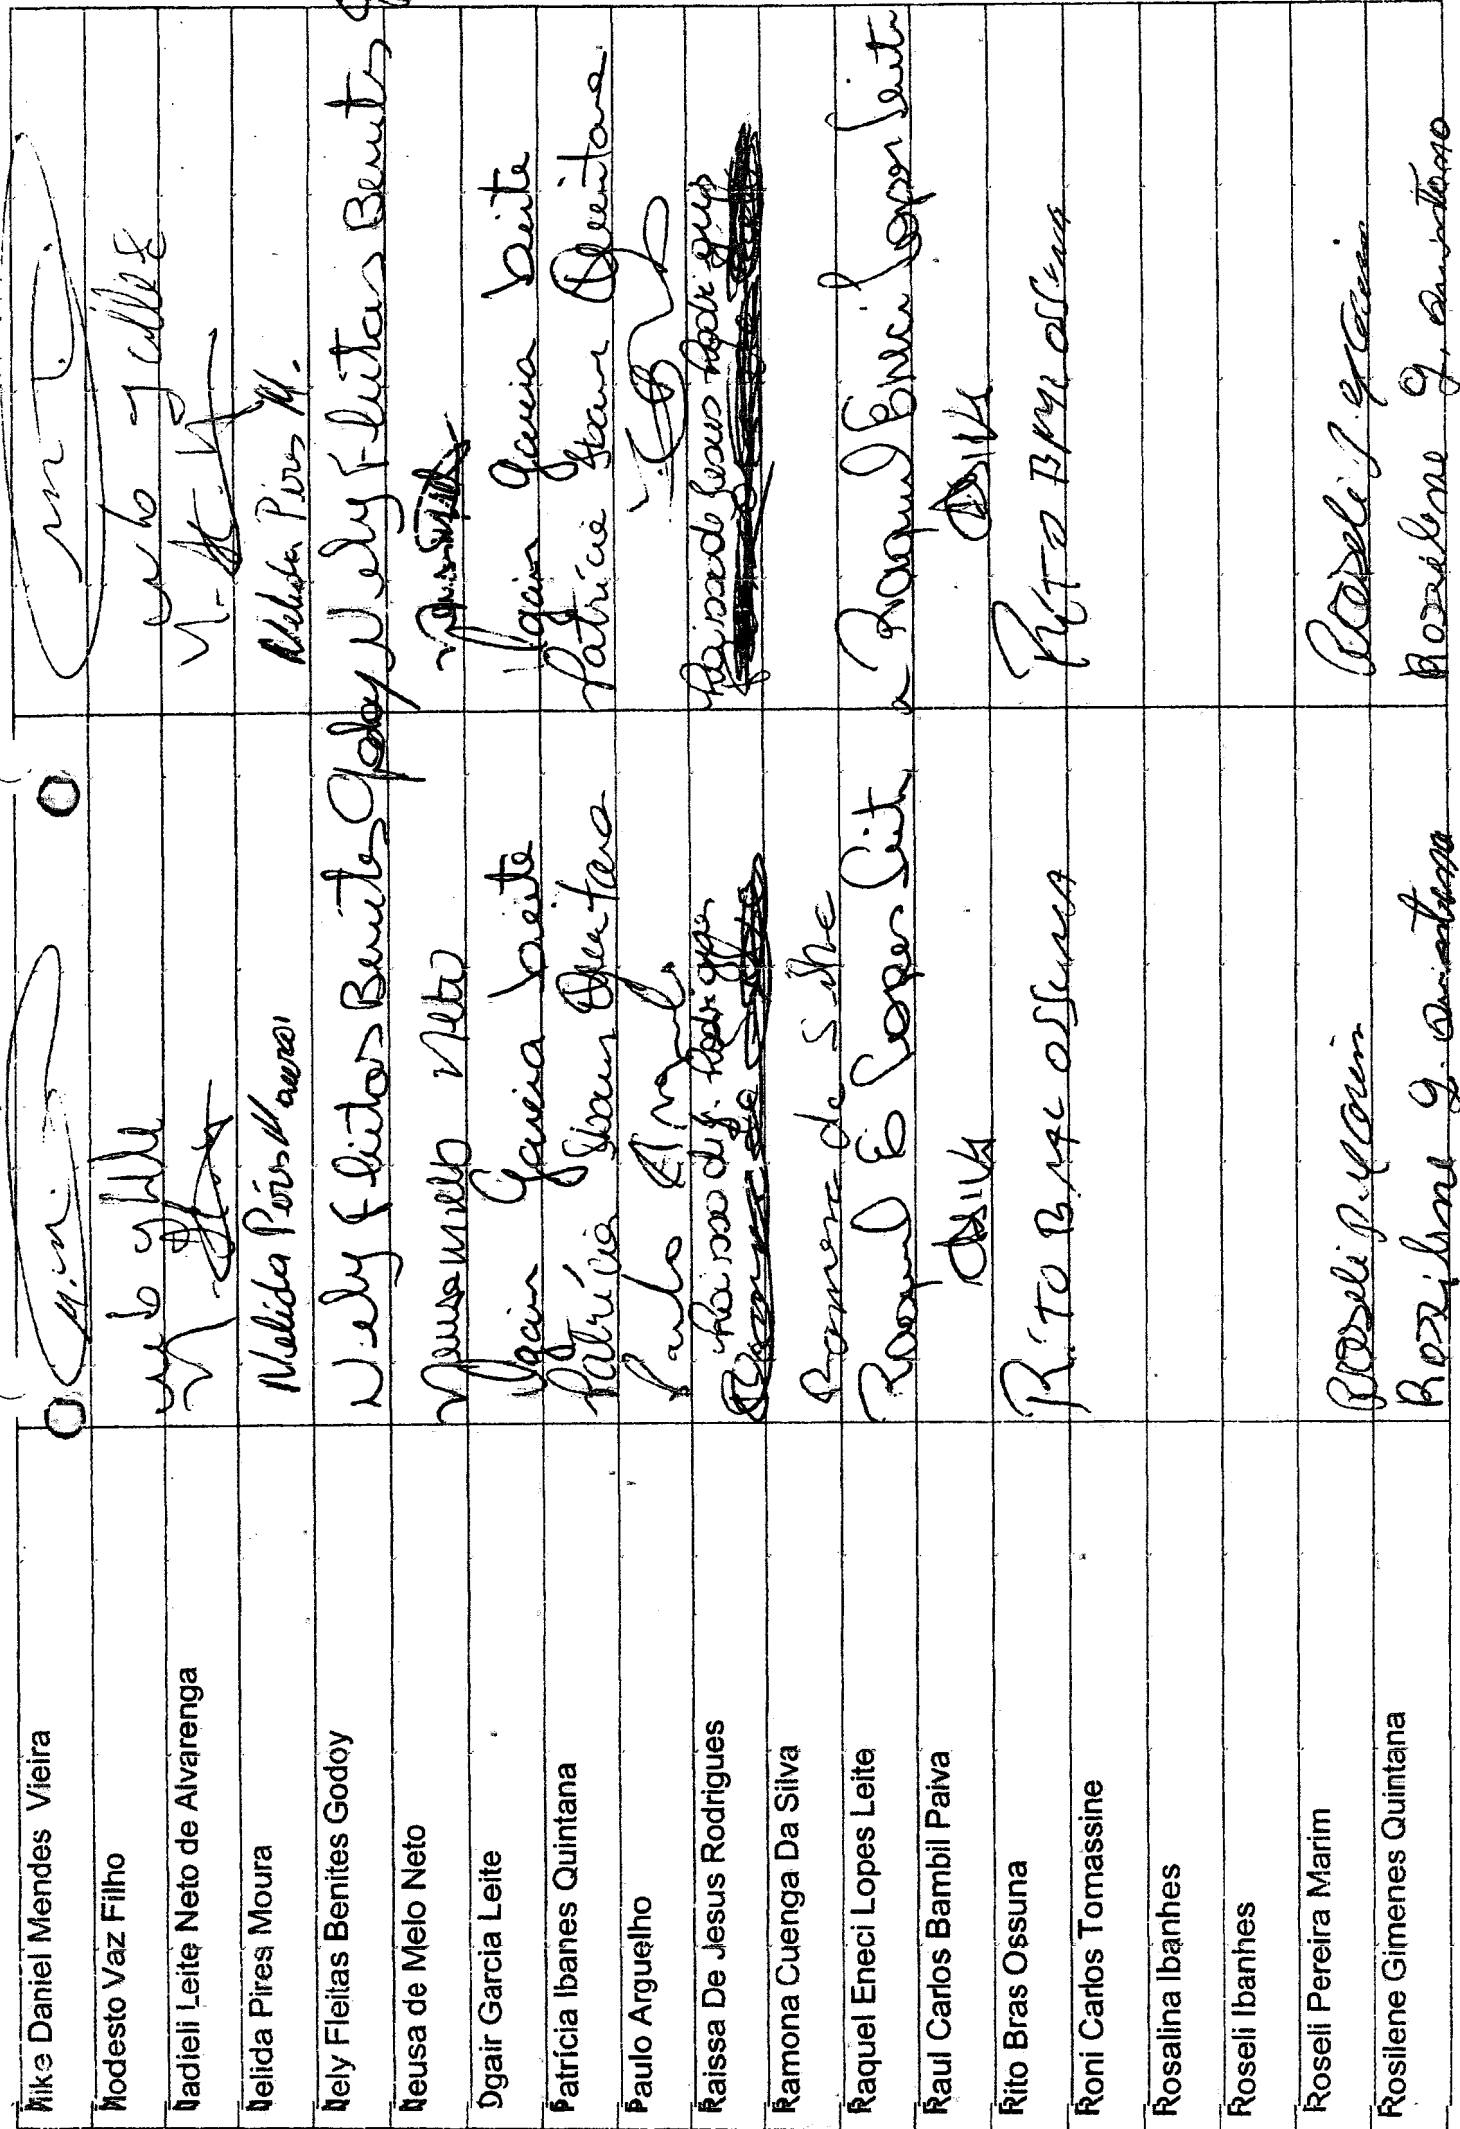 Mike Daniel Mendes Vieira
Modesto Vaz Filho
Nadieli Leite Neto de Alvarenga
Nelida Pires Moura Nelida Pires Nelida Pires M.
Nely Fleitas Benites Godoy Nely Fleitas Benites Godoy Nely Fleitas Benites
Neusa de Melo Neto Neusa Melo Neto
Ogair Garcia Leite Ogair Garcia Leite Ogair Garcia Leite
Patrícia Ibanes Quintana Patrícia Ibanes Quintana Patrícia Ibanes Quintana
Paulo Arguelho Paulo
Raissa De Jesus Rodrigues Raissa de J. Rodrigues Raissa de Jesus Rodrigues
Ramona Cuenga Da Silva Ramona da Silva
Raquel Eneci Lopes Leite Raquel E Lopes Leite Raquel Eneci Lopes Leite
Raul Carlos Bambil Paiva
Rito Bras Ossuna Rito Bras Ossuna Rito Bras Ossuna
Roni Carlos Tomassine
Rosalina Ibanhes
Roseli Ibanhes
Roseli Pereira Marim Roseli P. Marim Roseli P. Marim
Rosilene Gimenes Quintana Rosilene g. Quintana Rosilene g. Quintana